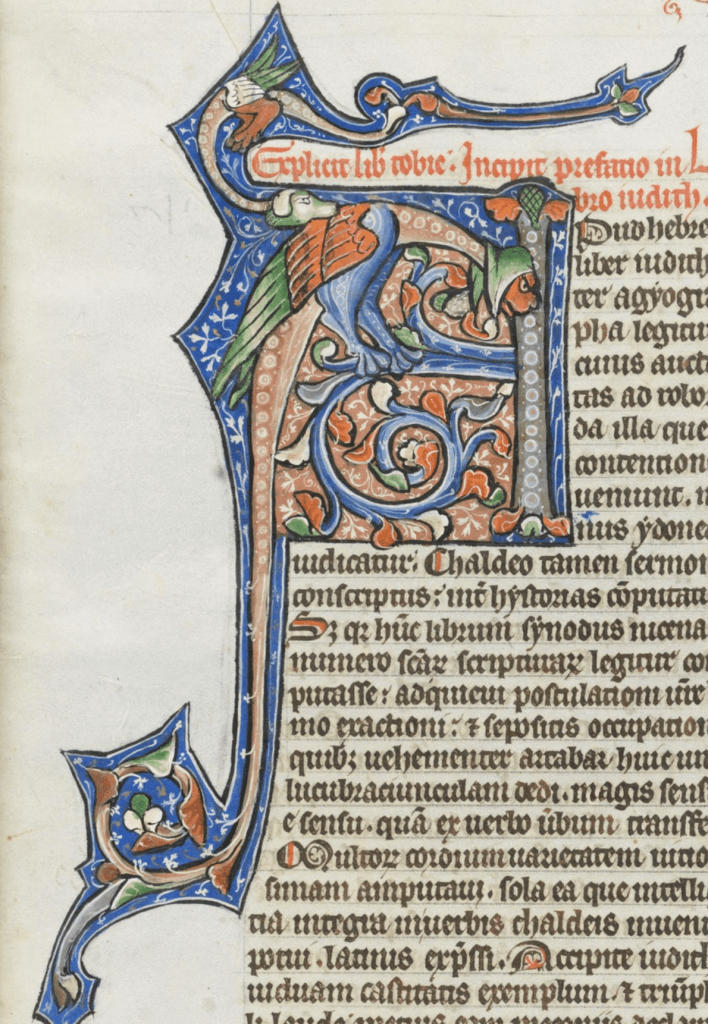 Explicit lib tobie. Incipit prefatio in L
bro iudith.
Pud hebre
liber iudith
ter agyogra
pha legitur
cuius aucto
tas ad robor
da illa que
contention
ueniunt. m
nus ydone
iudicatur. Chaldeo tamen sermon
conscriptus: int hystorias cōputatu
Sꝫ qr hūc librum synodus nicena
numero scāꝝ scripturaꝝ legitur com
putasse: adquieui postulationi uire
mo exactioni: ⁊ sepositis occupation
quibꝫ uehementer artabar huic un
lucubraciunculam dedi. magis sens
e sensu. quā ex uerbo ūbum transfe
Multoꝝ codicum uarietatem uicio
simam amputaui. sola ea que intelli
tia integra inuerbis chaldeis inueni
potui. latinis exp̄ssi. Accipite iudith
uiduam castitatis exemplum. ⁊ triūph